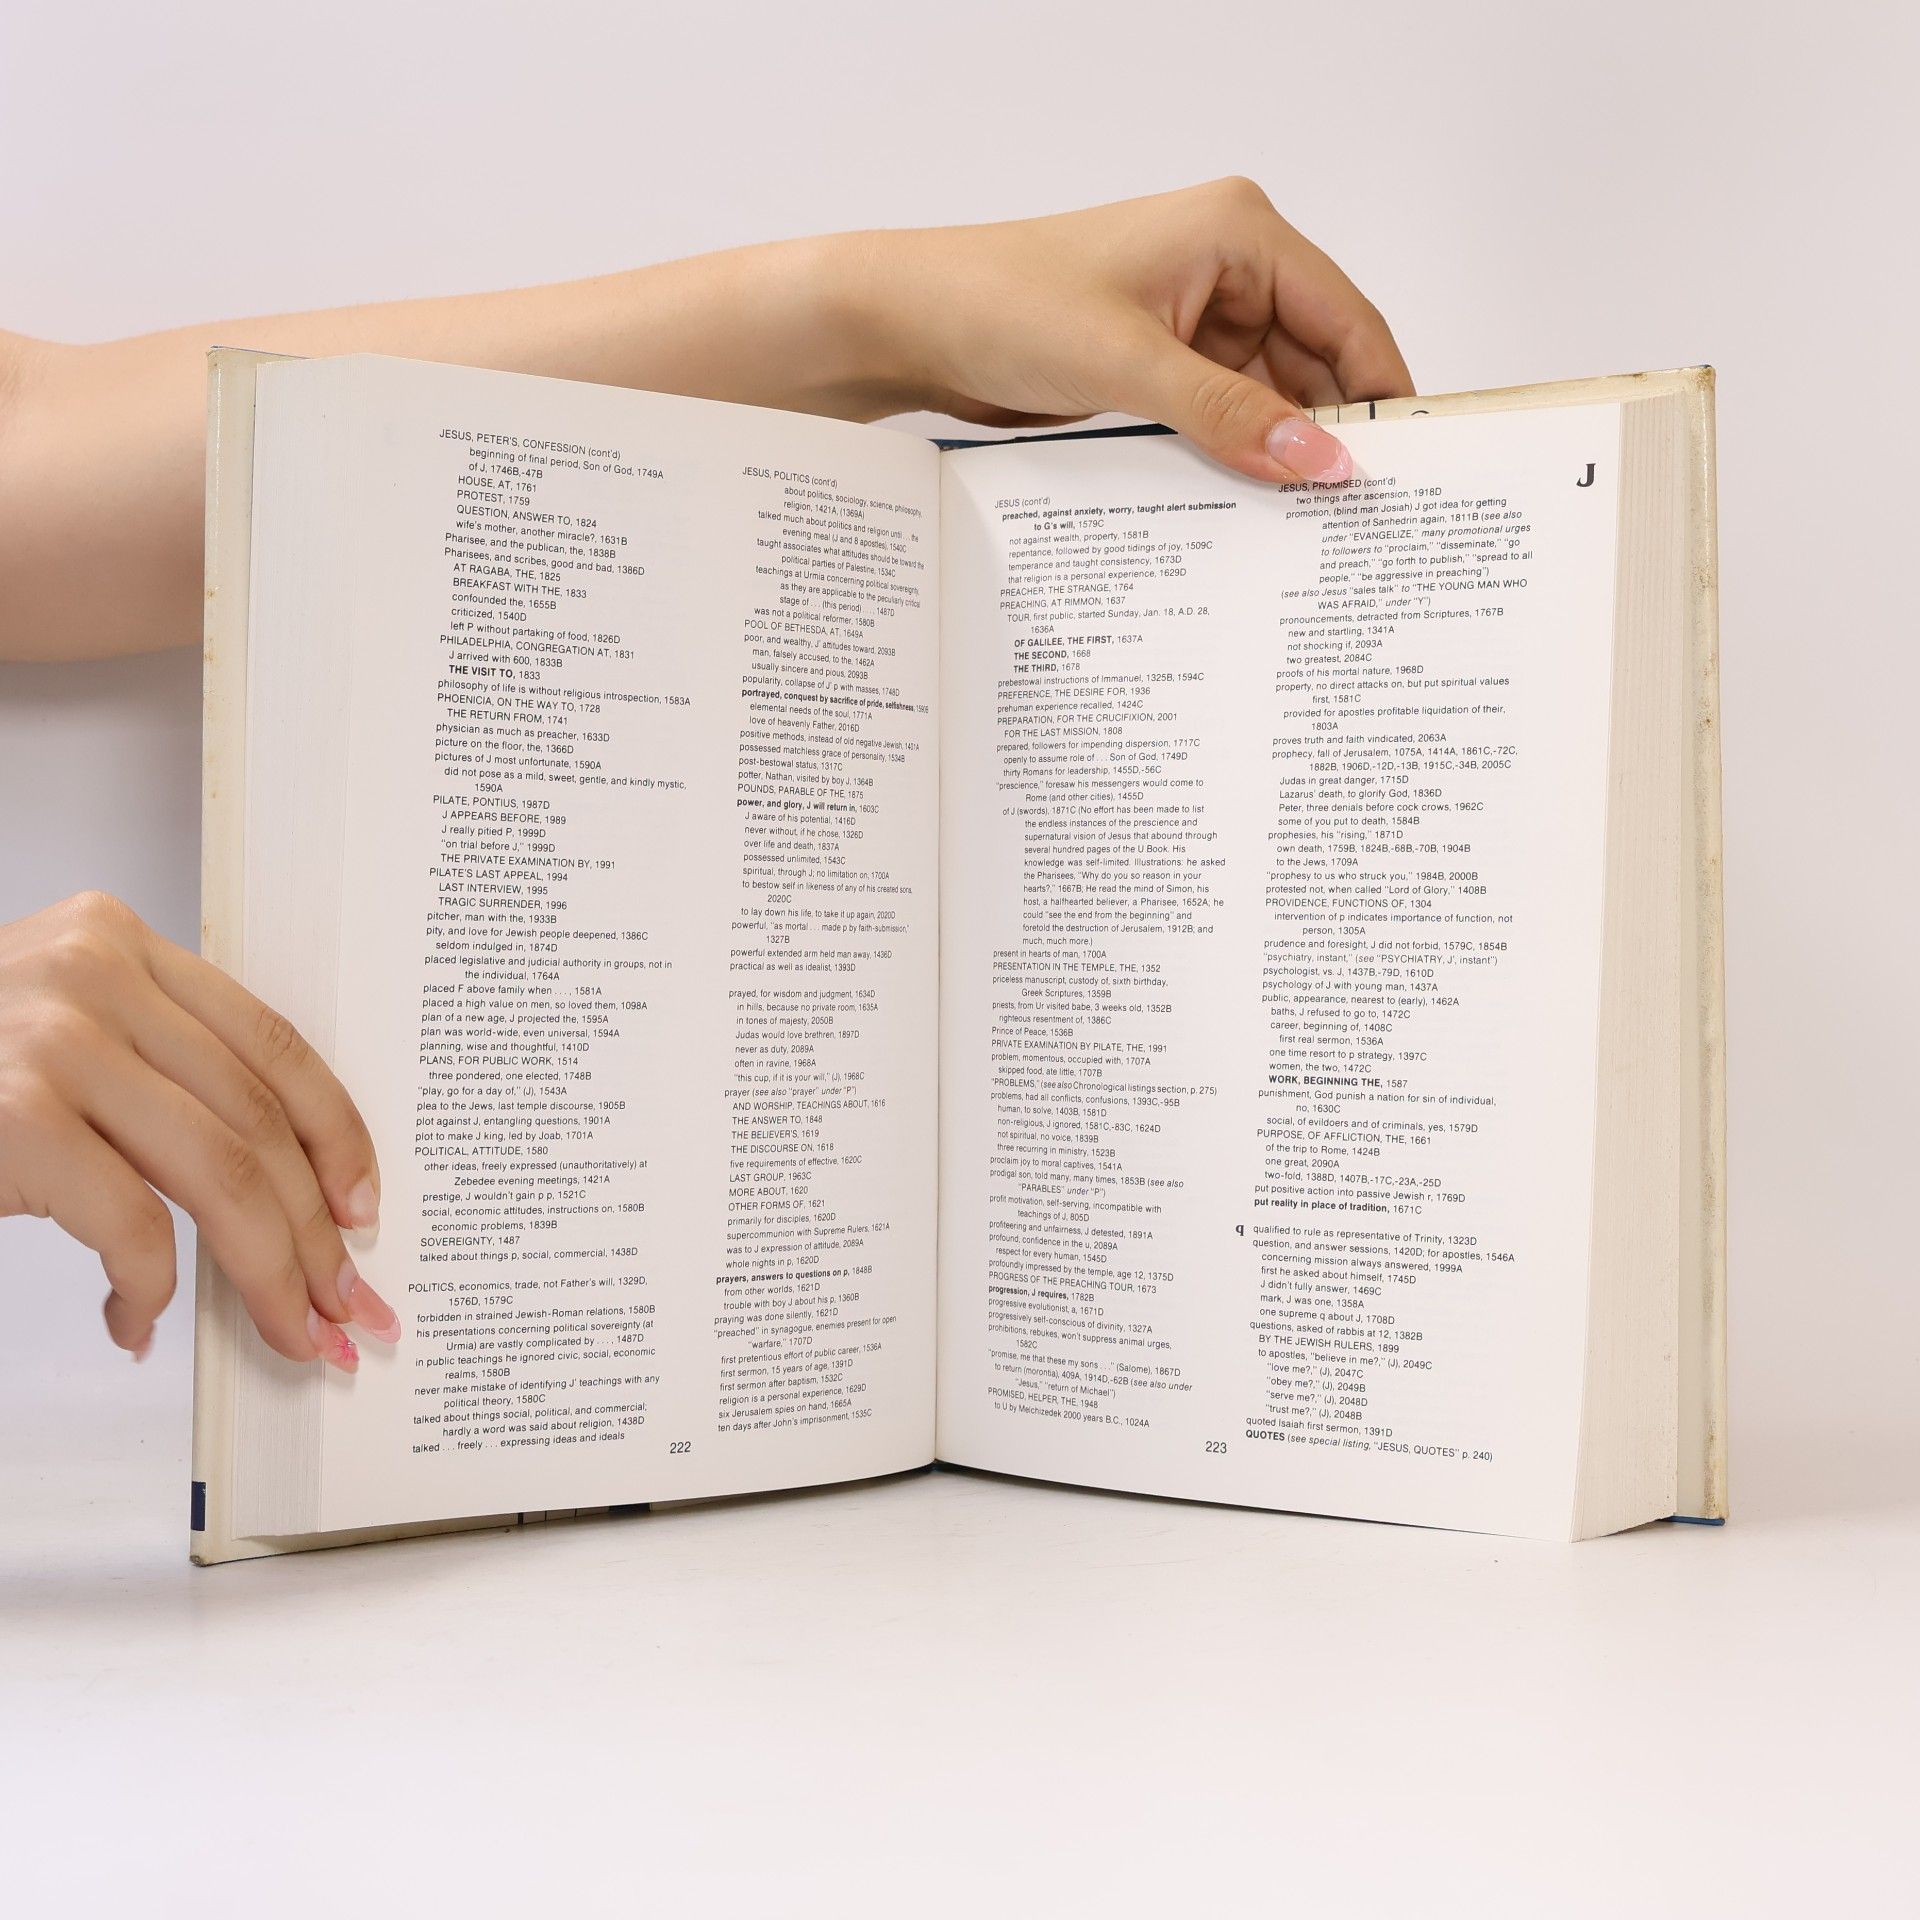 JESUS, PETER'S, CONFESSION (cont'd)
beginning of final period, Son of God, 1749A
of J, 1746B,-47B
HOUSE, AT, 1761
PROTEST, 1759
QUESTION, ANSWER TO, 1824
wife's mother, another miracle?, 1631B
Pharisee, and the publican, the, 1838B
Pharisees, and scribes, good and bad, 1386D
AT RAGABA, THE, 1825
BREAKFAST WITH THE, 1833
confounded the, 1655B
criticized, 1540D
left P without partaking of food, 1826D
PHILADELPHIA, CONGREGATION AT, 1831
J arrived with 600, 1833B
THE VISIT TO, 1833
philosophy of life is without religious introspection, 1583A
PHOENICIA, ON THE WAY TO, 1728
THE RETURN FROM, 1741
physician as much as preacher, 1633D
picture on the floor, the, 1366D
pictures of J most unfortunate, 1590A
did not pose as a mild, sweet, gentle, and kindly mystic,
1590A
PILATE, PONTIUS, 1987D
J APPEARS BEFORE, 1989
J really pitied P, 1999D
"on trial before J," 1999D
THE PRIVATE EXAMINATION BY, 1991
PILATE'S LAST APPEAL, 1994
LAST INTERVIEW, 1995
TRAGIC SURRENDER, 1996
pitcher, man with the, 1933B
pity, and love for Jewish people deepened, 1386C
seldom indulged in, 1874D
placed legislative and judicial authority in groups, not in
the individual, 1764A
placed F above family when . . . , 1581A
placed a high value on men, so loved them, 1098A
plan of a new age, J projected the, 1595A
plan was world-wide, even universal, 1594A
planning, wise and thoughtful, 1410D
PLANS, FOR PUBLIC WORK, 1514
three pondered, one elected, 1748B
"play, go for a day of," (J), 1543A
plea to the Jews, last temple discourse, 1905B
plot against J, entangling questions, 1901A
plot to make J king, led by Joab, 1701A
POLITICAL, ATTITUDE, 1580
other ideas, freely expressed (unauthoritatively) at
Zebedee evening meetings, 1421A
prestige, J wouldn't gain p p, 1521C
social, economic attitudes, instructions on, 1580B
economic problems, 1839B
SOVEREIGNTY, 1487
talked about things p, social, commercial, 1438D
POLITICS, economics, trade, not Father's will, 1329D,
1576D, 1579C
forbidden in strained Jewish-Roman relations, 1580B
his presentations concerning political sovereignty (at
Urmia) are vastly complicated by . . . , 1487D
in public teachings he ignored civic, social, economic
realms, 1580B
never make mistake of identifying J' teachings with any
political theory, 1580C
talked about things social, political, and commercial;
hardly a word was said about religion, 1438D
talked . . . freely . . . expressing ideas and ideals
JESUS, POLITICS (cont'd)
about politics, sociology, science, philosophy,
religion, 1421A, (1369A)
talked much about politics and religion until . . . the
evening meal (J and 8 apostles), 1540C
taught associates what attitudes should be toward the
political parties of Palestine, 1534C
teachings at Urmia concerning political sovereignty,
as they are applicable to the peculiarly critical
stage of . . . (this period) . . . , 1487D
was not a political reformer, 1580B
POOL OF BETHESDA, AT, 1649A
poor, and wealthy, J' attitudes toward, 2093B
man, falsely accused, to the, 1462A
usually sincere and pious, 2093B
popularity, collapse of J' p with masses, 1748D
portrayed, conquest by sacrifice of pride, selfishness, 1590B
elemental needs of the soul, 1771A
love of heavenly Father, 2016D
positive methods, instead of old negative Jewish, 1401A
possessed matchless grace of personality, 1534B
post-bestowal status, 1317C
potter, Nathan, visited by boy J, 1364B
POUNDS, PARABLE OF THE, 1875
power, and glory, J will return in, 1603C
J aware of his potential, 1416D
never without, if he chose, 1326D
over life and death, 1837A
possessed unlimited, 1543C
spiritual, through J; no limitation on, 1700A
to bestow self in likeness of any of his created sons,
2020C
to lay down his life, to take it up again, 2020D
powerful, "as mortal . . . made p by faith-submission,"
1327B
powerful extended arm held man away, 1436D
practical as well as idealist, 1393D
prayed, for wisdom and judgment, 1634D
in hills, because no private room, 1635A
in tones of majesty, 2050B
Judas would love brethren, 1897D
never as duty, 2089A
often in ravine, 1968A
"this cup, if it is your will," (J), 1968C
prayer (see also "prayer" under "P")
AND WORSHIP, TEACHINGS ABOUT, 1616
THE ANSWER TO, 1848
THE BELIEVER'S, 1619
THE DISCOURSE ON, 1618
five requirements of effective, 1620C
LAST GROUP, 1963C
MORE ABOUT, 1620
OTHER FORMS OF, 1621
primarily for disciples, 1620D
supercommunion with Supreme Rulers, 1621A
was to J expression of attitude, 2089A
whole nights in p, 1620D
prayers, answers to questions on p, 1848B
from other worlds, 1621D
trouble with boy J about his p, 1360B
praying was done silently, 1621D
"preached" in synagogue, enemies present for open
"warfare," 1707D
first pretentious effort of public career, 1536A
first sermon, 15 years of age, 1391D
first sermon after baptism, 1532C
religion is a personal experience, 1629D
six Jerusalem spies on hand, 1665A
ten days after John's imprisonment, 1535C
222
JESUS (cont'd)
preached, against anxiety, worry, taught alert submission
to G's will, 1579C
not against wealth, property, 1581B
repentance, followed by good tidings of joy, 1509C
temperance and taught consistency, 1673D
that religion is a personal experience, 1629D
PREACHER, THE STRANGE, 1764
PREACHING, AT RIMMON, 1637
TOUR, first public, started Sunday, Jan. 18, A.D. 28,
1636A
OF GALILEE, THE FIRST, 1637A
THE SECOND, 1668
THE THIRD, 1678
prebestowal instructions of Immanuel, 1325B, 1594C
PREFERENCE, THE DESIRE FOR, 1936
prehuman experience recalled, 1424C
PREPARATION, FOR THE CRUCIFIXION, 2001
FOR THE LAST MISSION, 1808
prepared, followers for impending dispersion, 1717C
openly to assume role of . . . Son of God, 1749D
thirty Romans for leadership, 1455D,-56C
"prescience," foresaw his messengers would come to
Rome (and other cities), 1455D
of J (swords), 1871C (No effort has been made to list
the endless instances of the prescience and
supernatural vision of Jesus that abound through
several hundred pages of the U.Book. His
knowledge was self-limited. Illustrations: he asked
the Pharisees, "Why do you so reason in your
hearts?," 1667B; He read the mind of Simon, his
host, a halfhearted believer, a Pharisee, 1652A; he
could "see the end from the beginning" and
foretold the destruction of Jerusalem, 1912B; and
much, much more.)
present in hearts of man, 1700A
PRESENTATION IN THE TEMPLE, THE, 1352
priceless manuscript, custody of, sixth birthday,
Greek Scriptures, 1359B
priests, from Ur visited babe, 3 weeks old, 1352B
righteous resentment of, 1386C
Prince of Peace, 1536B
PRIVATE EXAMINATION BY PILATE, THE, 1991
problem, momentous, occupied with, 1707A
skipped food, ate little, 1707B
"PROBLEMS," (see also Chronological listings section, p. 275)
problems, had all conflicts, confusions, 1393C,-95B
human, to solve, 1403B, 1581D
non-religious, J ignored, 1581C,-83C, 1624D
not spiritual, no voice, 1839B
three recurring in ministry, 1523B
proclaim joy to moral captives, 1541A
prodigal son, told many, many times, 1853B (see also
"PARABLES" under "P")
profit motivation, self-serving, incompatible with
teachings of J, 805D
profiteering and unfairness, J detested, 1891A
profound, confidence in the u, 2089A
respect for every human, 1545D
profoundly impressed by the temple, age 12, 1375D
PROGRESS OF THE PREACHING TOUR, 1673
progression, J requires, 1782B
progressive evolutionist, a, 1671D
progressively self-conscious of divinity, 1327A
prohibitions, rebukes, won't suppress animal urges,
1582C
"promise, me that these my sons . . ." (Salome), 1867D
to return (morontia), 409A, 1914D,-62B (see also under
"Jesus," "return of Michael")
PROMISED, HELPER, THE, 1948
to U by Melchizedek 2000 years B.C., 1024A
223
J
JESUS, PROMISED (cont'd)
two things after ascension, 1918D
promotion, (blind man Josiah) J got idea for getting
attention of Sanhedrin again, 1811B (see also
under "EVANGELIZE," many promotional urges
to followers to "proclaim," "disseminate," "go
and preach," "go forth to publish," "spread to all
people," "be aggressive in preaching")
(see also Jesus "sales talk" to "THE YOUNG MAN WHO
WAS AFRAID," under "Y")
pronouncements, detracted from Scriptures, 1767B
new and startling, 1341A
not shocking if, 2093A
two greatest, 2084C
proofs of his mortal nature, 1968D
property, no direct attacks on, but put spiritual values
first, 1581C
provided for apostles profitable liquidation of their,
1803A
proves truth and faith vindicated, 2063A
prophecy, fall of Jerusalem, 1075A, 1414A, 1861C,-72C,
1882B, 1906D,-12D,-13B, 1915C,-34B, 2005C
Judas in great danger, 1715D
Lazarus' death, to glorify God, 1836D
Peter, three denials before cock crows, 1962C
some of you put to death, 1584B
prophesies, his "rising," 1871D
own death, 1759B, 1824B,-68B,-70B, 1904B
to the Jews, 1709A
"prophesy to us who struck you," 1984B, 2000B
protested not, when called "Lord of Glory," 1408B
PROVIDENCE, FUNCTIONS OF, 1304
intervention of p indicates importance of function, not
person, 1305A
prudence and foresight, J did not forbid, 1579C, 1854B
"psychiatry, instant," (see "PSYCHIATRY, J', instant")
psychologist, vs. J, 1437B,-79D, 1610D
psychology of J with young man, 1437A
public, appearance, nearest to (early), 1462A
baths, J refused to go to, 1472C
career, beginning of, 1408C
first real sermon, 1536A
one time resort to p strategy, 1397C
women, the two, 1472C
WORK, BEGINNING THE, 1587
punishment, God punish a nation for sin of individual,
no, 1630C
social, of evildoers and of criminals, yes, 1579D
PURPOSE, OF AFFLICTION, THE, 1661
of the trip to Rome, 1424B
one great, 2090A
two-fold, 1388D, 1407B,-17C,-23A,-25D
put positive action into passive Jewish r, 1769D
put reality in place of tradition, 1671C
q qualified to rule as representative of Trinity, 1323D
question, and answer sessions, 1420D; for apostles, 1546A
concerning mission always answered, 1999A
first he asked about himself, 1745D
J didn't fully answer, 1469C
mark, J was one, 1358A
one supreme q about J, 1708D
questions, asked of rabbis at 12, 1382B
BY THE JEWISH RULERS, 1899
to apostles, "believe in me?," (J), 2049C
"love me?," (J), 2047C
"obey me?," (J), 2049B
"serve me?," (J), 2048D
"trust me?," (J), 2048B
quoted Isaiah first sermon, 1391D
QUOTES (see special listing, "JESUS, QUOTES" p. 240)